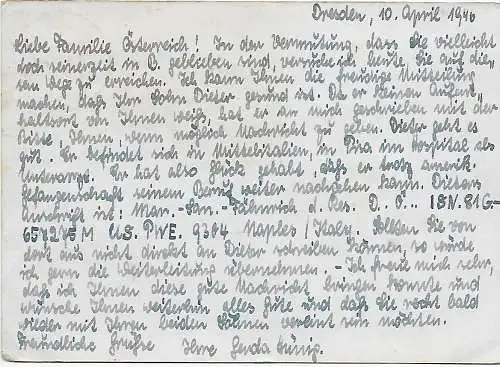 Dresden, 10. April 1946
Liebe Familie Österreich! In der Vermutung, dass Sie vielleicht
doch seinerzeit in B. geblieben sind, versuche ich heute, Sie auf die-
sem Wege zu erreichen. Ich kann Ihnen die freudige Mitteilung
machen, daß Ihr Sohn Dieter gesund ist. Da er keinen Aufent-
haltsort von Ihnen weiß, hat er an mich geschrieben mit der
Bitte, Ihnen, wenn möglich Nachricht zu geben. Dieter geht es
gut. Er befindet sich in Mittelitalien, in Pisa im Hospital als
Unterarzt. Er hat also Glück gehabt, daß er trotz amerik.
Gefangenschaft seinem Beruf weiter nachgehen kann. Dieters
Anschrift ist: Mar.-San.-Fähnrich d. Res. D. O... 18N. 81G-
657275M U.S. PWE. 9304 Naples / Italy. Sollten Sie von
dort aus nicht direkt an Dieter schreiben können, so würde
ich gern die Weiterleitung übernehmen. - Ich freue mich sehr,
daß ich Ihnen diese gute Nachricht bringen konnte und
wünsche Ihnen weiterhin alles Gute und daß Sie recht bald
wieder mit Ihren beiden Söhnen vereint sein möchten.
Freundliche Grüße Ihre Gerda